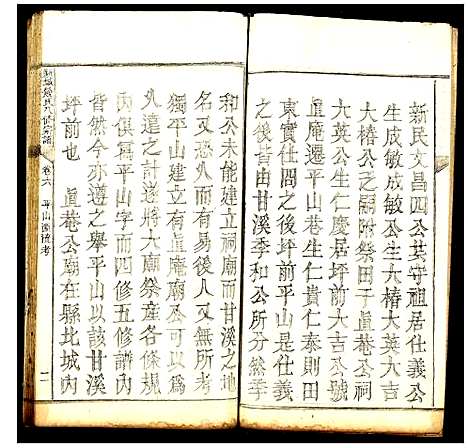 新民文昌四公其守祖居仕義公
生成敏成敏公生大椿大英大吉
大椿公之嗣附祭田于眞菴公祠
大英公生仁慶居坪前大吉公號
眞菴遷平山巷生仁貴仁泰則田
東實仕問之後坪前平山是仕義
之後皆是甘溪季和公所分然季
和公未能建立祠廟而甘溪之地
名又恐久而有易後人又無所考
獨平山建立有眞菴廟不可以爲
久遠之計遂將大廟祭產各條規
內俱寫平山字而四修五修譜內
皆然今亦遵之舉平山以該甘溪
坪前也 眞菴公廟在縣北城內
卷六 平山衡流考
二